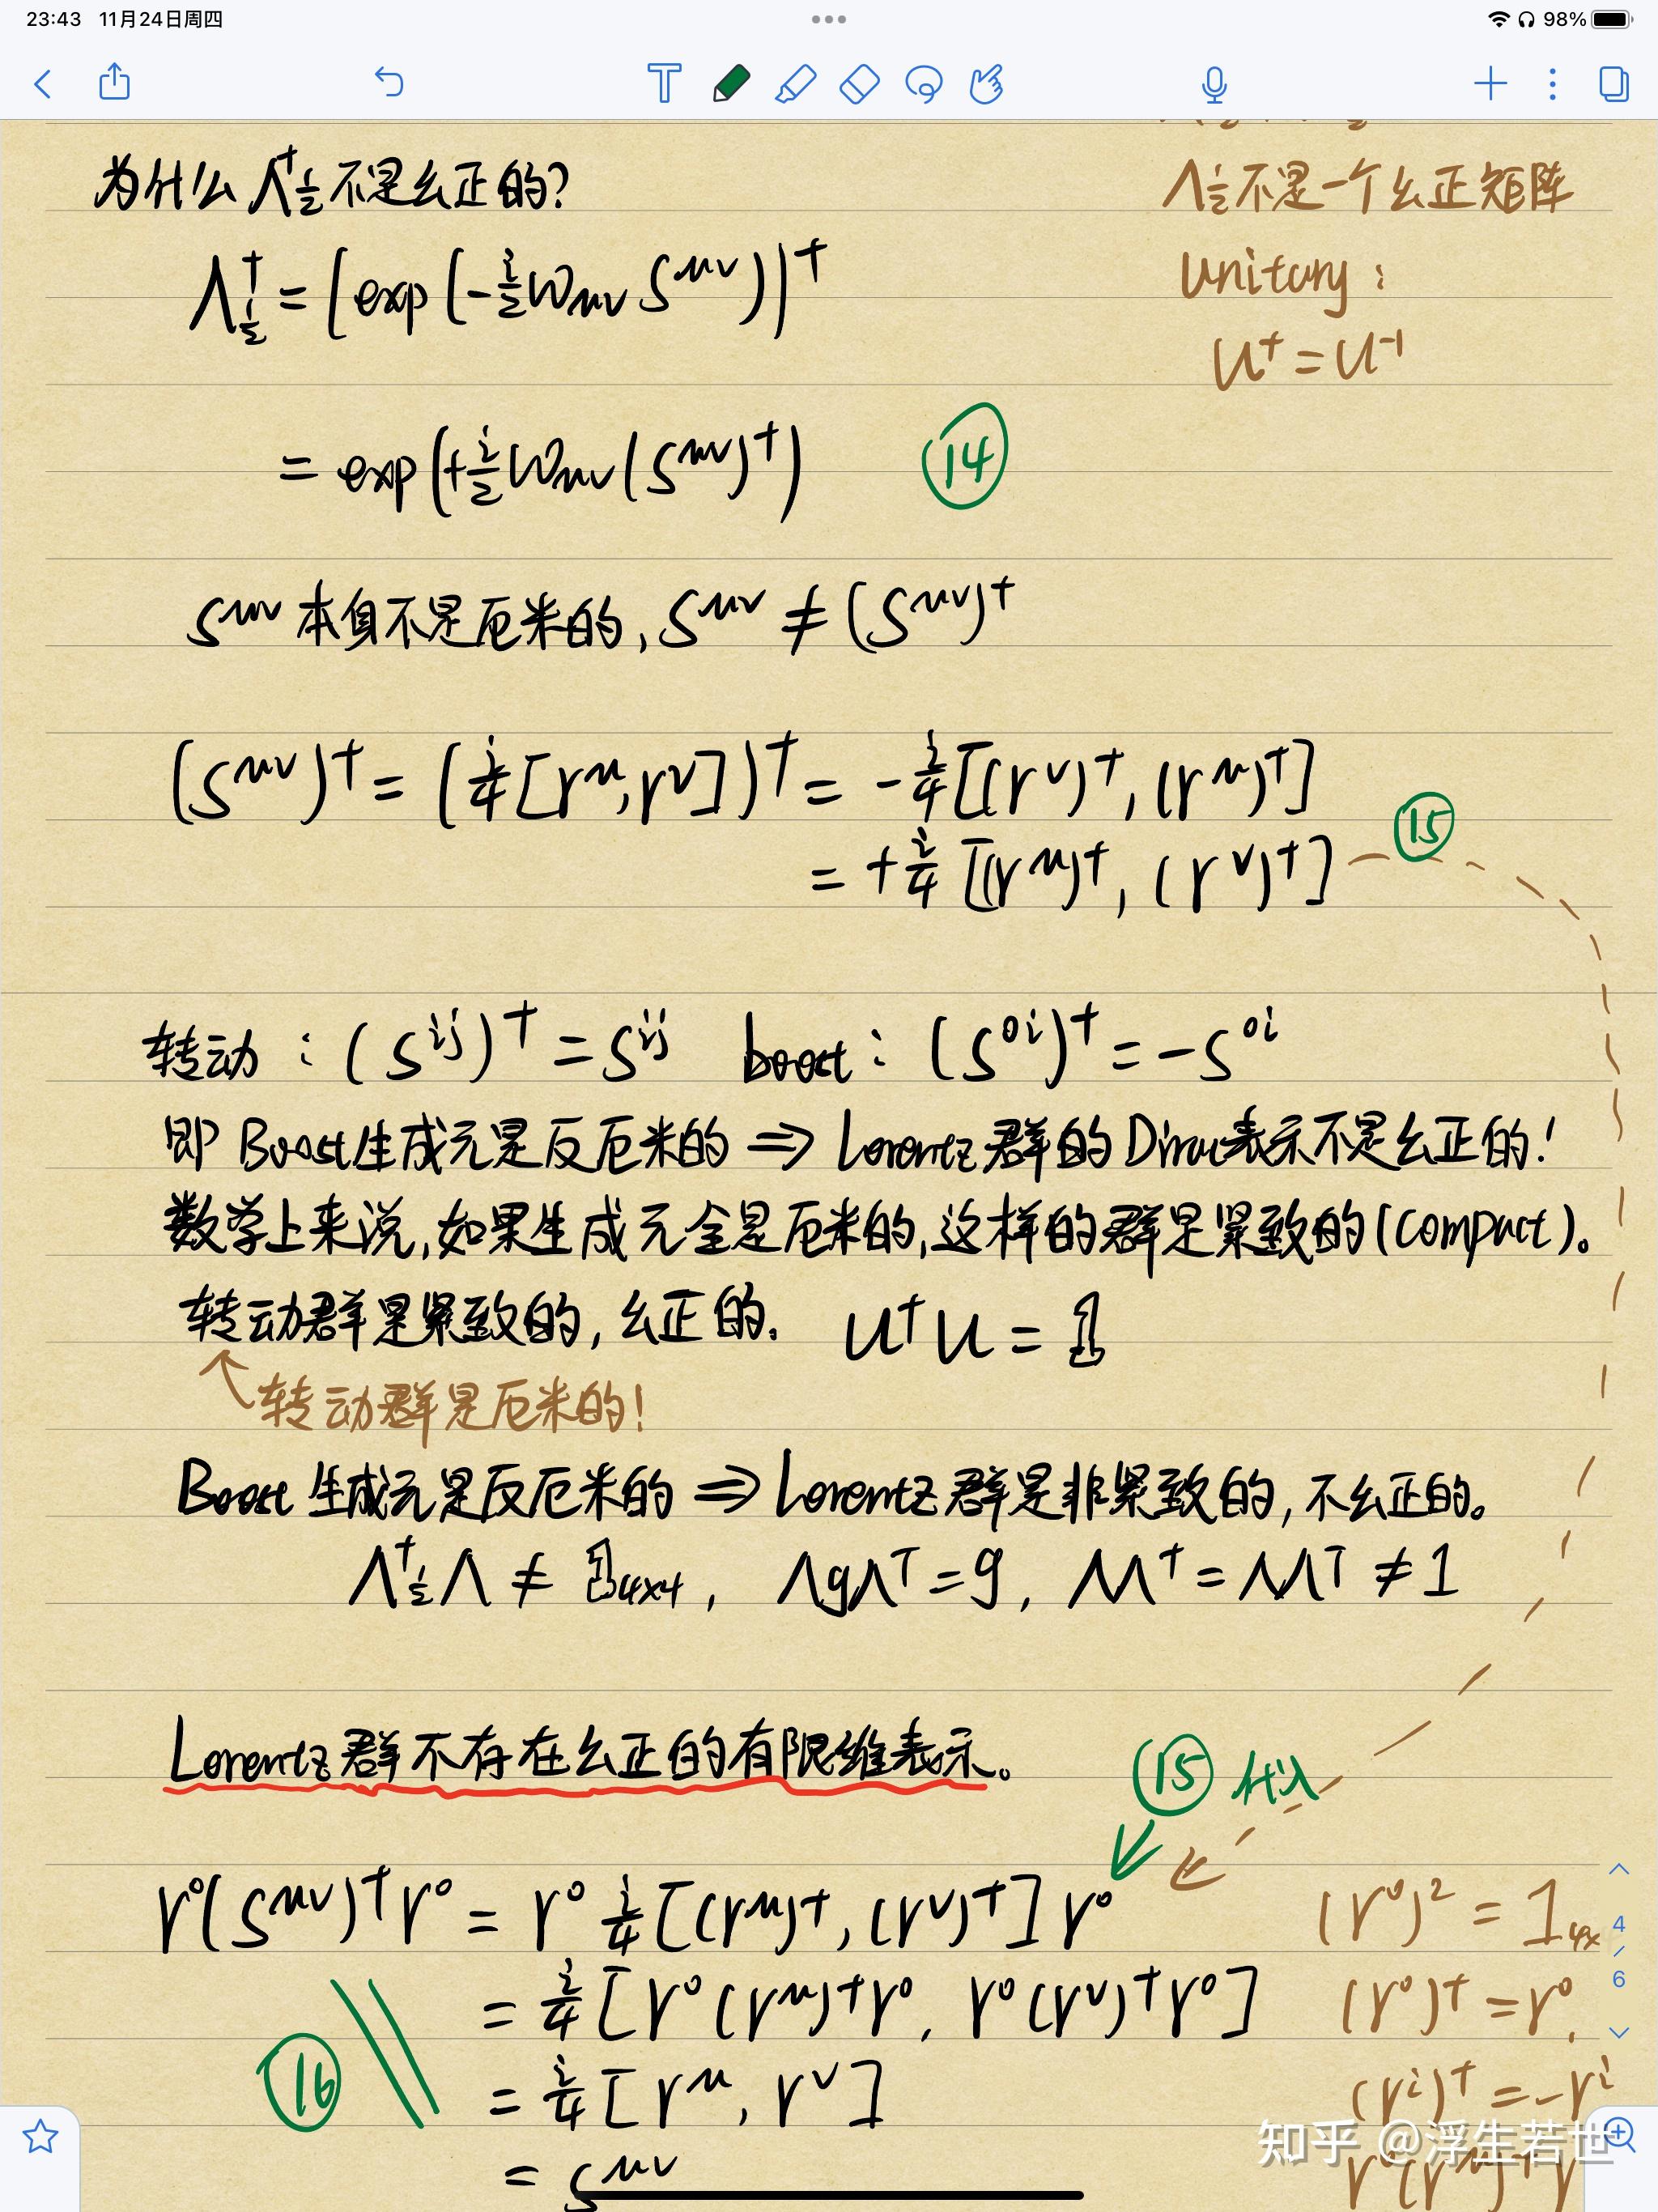 23:43 11月24日周四
98%
Λ½不是一个幺正矩阵
为什么 Λ†½ 不是幺正的?
unitary:
Λ†½ = [exp(-i/2 ωμν S^μν)]†
U† = U⁻¹
= exp(+i/2 ωμν (S^μν)†) ⑭
S^μν 本身不是厄米的, S^μν ≠ (S^μν)†
(S^μν)† = (i/4 [γ^μ, γ^ν])† = -i/4 [(γ^ν)†, (γ^μ)†]
= +i/4 [(γ^μ)†, (γ^ν)†] ⑮
转动: (S^ij)† = S^ij boost: (S^0i)† = -S^0i
即 Boost生成元是反厄米的 ⇒ Lorentz群的Dirac表示不是幺正的!
数学上来说,如果生成元全是厄米的,这样的群是紧致的(compact)。
转动群是紧致的, 幺正的. U†U = 1
转动群是厄米的!
Boost 生成元是反厄米的 ⇒ Lorentz 群是非紧致的, 不幺正的。
Λ†½Λ ≠ 1₄ₓ₄, ΛgΛᵀ = g, ΛΛ† = ΛΛᵀ ≠ 1
Lorentz群不存在幺正的有限维表示。
⑮ 代入
γ⁰(S^μν)†γ⁰ = γ⁰ i/4 [(γ^μ)†, (γ^ν)†] γ⁰
(γ⁰)² = 1₄ₓ
= i/4 [γ⁰(γ^μ)†γ⁰, γ⁰(γ^ν)†γ⁰]
(γ⁰)† = γ⁰,
⑯
= i/4 [γ^μ, γ^ν]
(γ^i)† = -γ^i
= S^μν
γ⁰(γ^μ)†γ
4
/
6
知乎 @浮生若世